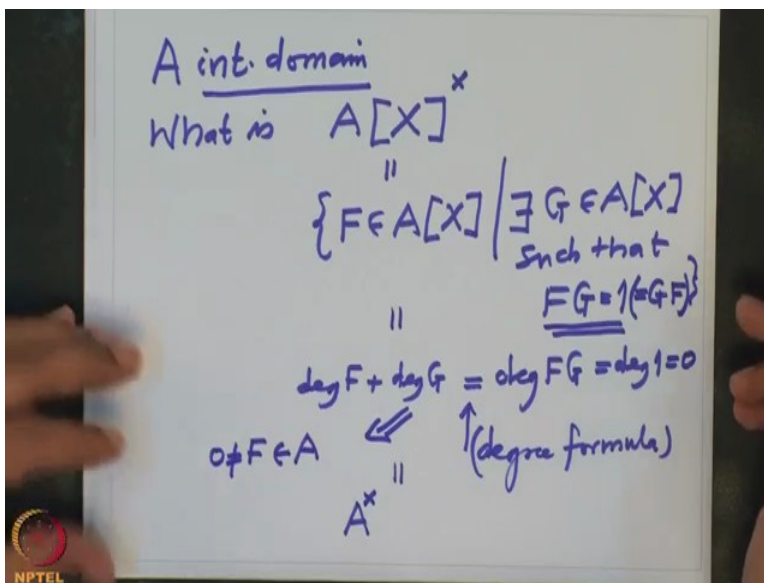 A int. domain
What is A[X]^×
=
{F ∈ A[X] | ∃ G ∈ A[X]
such that
FG = 1 (=GF)}
=
deg F + deg G = deg FG = deg 1 = 0
0 ≠ F ∈ A ⇐ ↑ (degree formula)
=
A^×
NPTEL